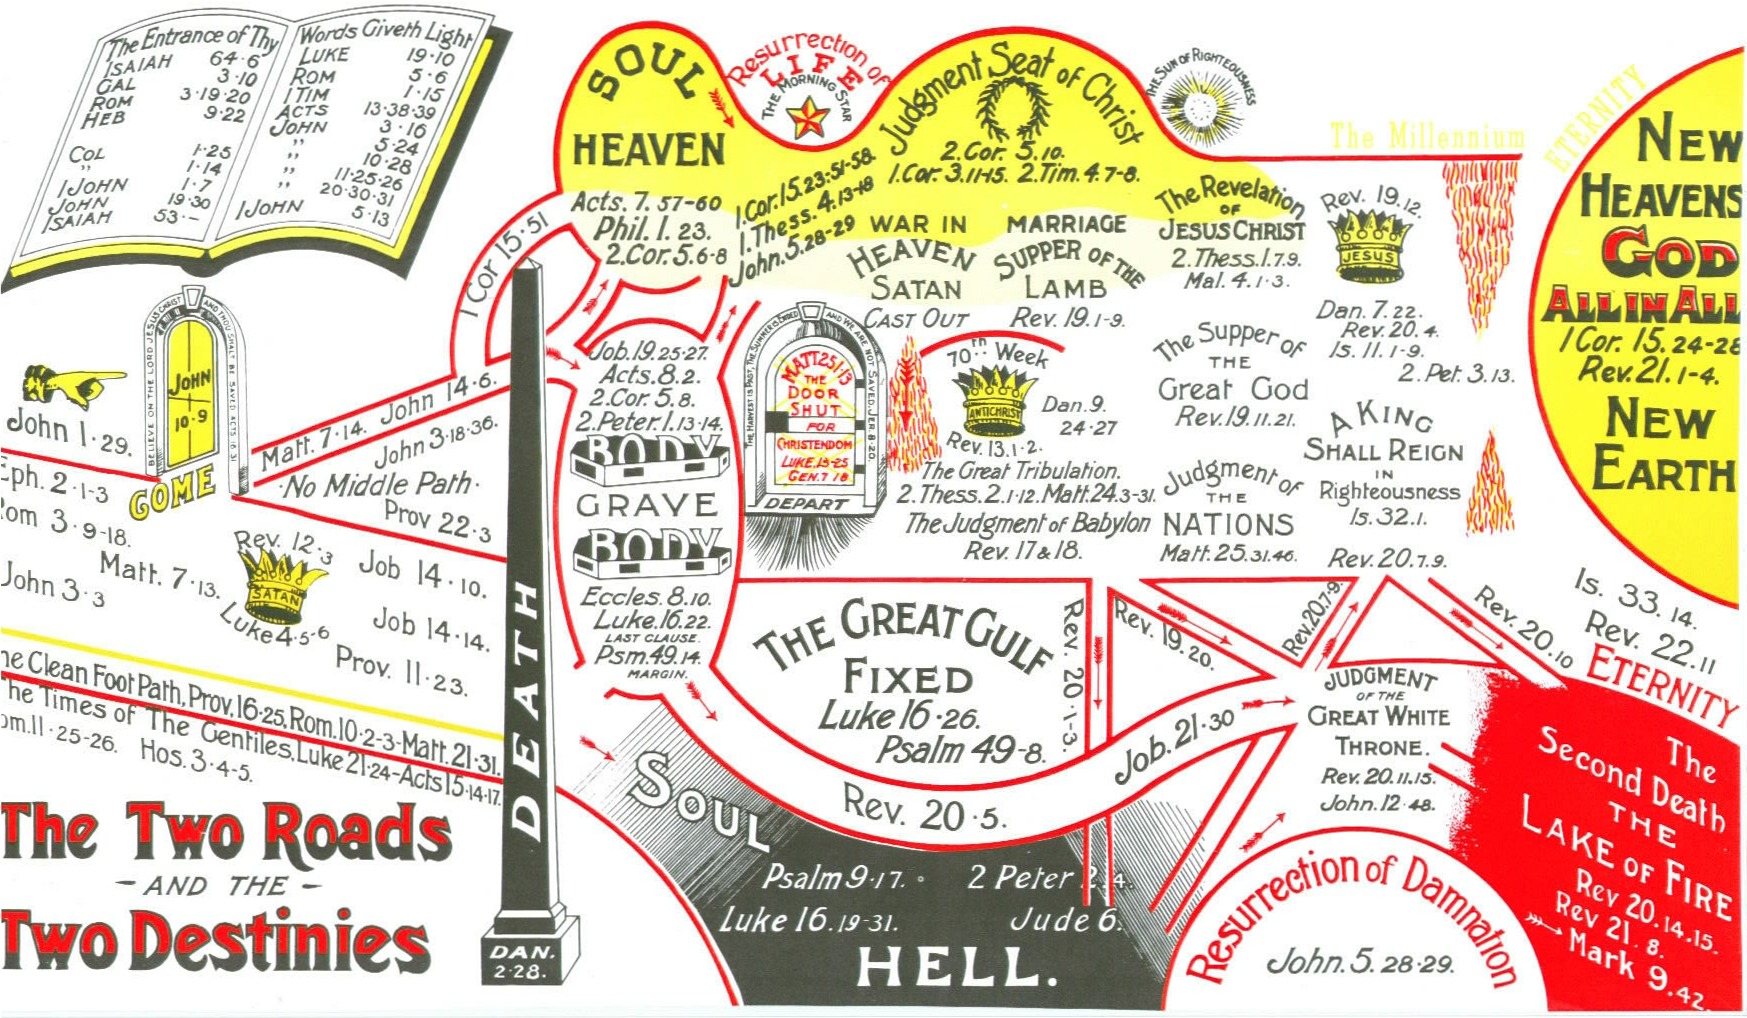 The Entrance of Thy
ISAIAH 64·6
GAL 3·10
ROM 3·19·20
HEB 9·22
COL 1·25
" 1·14
1 JOHN 1·7
JOHN 19·30
ISAIAH 53·–
Words Giveth Light
LUKE 19·10
ROM 5·6
1 TIM 1·15
ACTS 13·38·39
JOHN 3·16
" 5·24
" 10·28
" 11·25·26
" 20·30·31
1 JOHN 5·13
BELIEVE ON THE LORD JESUS CHRIST
AND THOU SHALT BE SAVED ACTS 16·31
JOHN
10·9
COME
John 1·29.
Eph. 2·1-3
Rom 3·9-18.
John 3·3
Matt. 7·13.
Matt. 7·14. John 14·6.
John 3·18·36.
·No Middle Path·
Prov 22·3
Rev. 12·3
SATAN
Luke 4·5·6
Job 14·10.
Job 14·14.
Prov. 11·23.
he Clean Foot Path, Prov. 16·25. Rom. 10·2-3-Matt. 21·31.
he Times of The Gentiles. Luke 21·24-Acts 15·14·17.
om. 11·25-26. Hos. 3·4-5.
The Two Roads
– AND THE –
Two Destinies
DEATH
DAN.
2·28.
1 Cor 15·51
SOUL
HEAVEN
Acts. 7. 57-60
Phil. 1. 23.
2. Cor. 5. 6·8
Resurrection of
LIFE
THE MORNING STAR
1. Cor. 15. 23·51-58.
1. Thess. 4. 13-18
John. 5. 28-29
Judgment Seat of Christ
2. Cor. 5. 10.
1. Cor. 3. 11-15. 2. Tim. 4. 7-8.
THE SUN OF RIGHTEOUSNESS
WAR IN
HEAVEN
SATAN
CAST OUT
MARRIAGE
SUPPER OF THE
LAMB
Rev. 19. 1-9.
The Revelation
OF
JESUS CHRIST
2. Thess. 1. 7. 9.
Mal. 4. 1·3.
The Millennium
Rev. 19. 12.
JESUS
Dan. 7. 22.
Rev. 20. 4.
Is. 11. 1-9.
2. Pet. 3. 13.
ETERNITY
NEW
HEAVENS
GOD
ALL IN ALL
1 Cor. 15. 24-28
Rev. 21. 1-4.
NEW
EARTH
Job. 19. 25·27.
Acts. 8. 2.
2. Cor. 5. 8.
2. Peter. 1. 13·14.
BODY
GRAVE
BODY
Eccles. 8. 10.
Luke. 16. 22.
LAST CLAUSE.
Psm. 49. 14.
MARGIN.
THE HARVEST IS PAST, THE SUMMER IS ENDED
AND WE ARE NOT SAVED. JER. 8·20.
MATT 25 1·13
THE
DOOR
SHUT
FOR
CHRISTENDOM
LUKE. 13-25
GEN. 7 16
DEPART
70th Week
ANTICHRIST
Dan. 9.
24·27
Rev. 13. 1·2.
The Great Tribulation.
2. Thess. 2. 1·12. Matt. 24. 3-31.
The Judgment of Babylon
Rev. 17 & 18.
The Supper of
THE
Great God
Rev. 19. 11. 21.
Judgment of
THE
NATIONS
Matt. 25. 31. 46.
A KING
SHALL REIGN
IN
Righteousness
Is. 32. 1.
Rev. 20. 7. 9.
THE GREAT GULF
FIXED
Luke 16·26.
Psalm 49-8.
Rev. 20·1-3.
Rev. 19. 20.
Rev. 20. 7·9.
Rev. 20. 10
Is. 33. 14.
Rev. 22. 11
ETERNITY
Rev. 20·5.
Job. 21·30
JUDGMENT
OF THE
GREAT WHITE
THRONE.
Rev. 20. 11. 15.
John. 12·48.
The
Second Death
THE
LAKE OF FIRE
Rev 20. 14. 15.
Rev 21. 8.
Mark 9. 42.
SOUL
Psalm 9·17. 2 Peter 2. 4.
Luke 16. 19-31. Jude 6.
HELL.
Resurrection of Damnation
John. 5. 28·29.